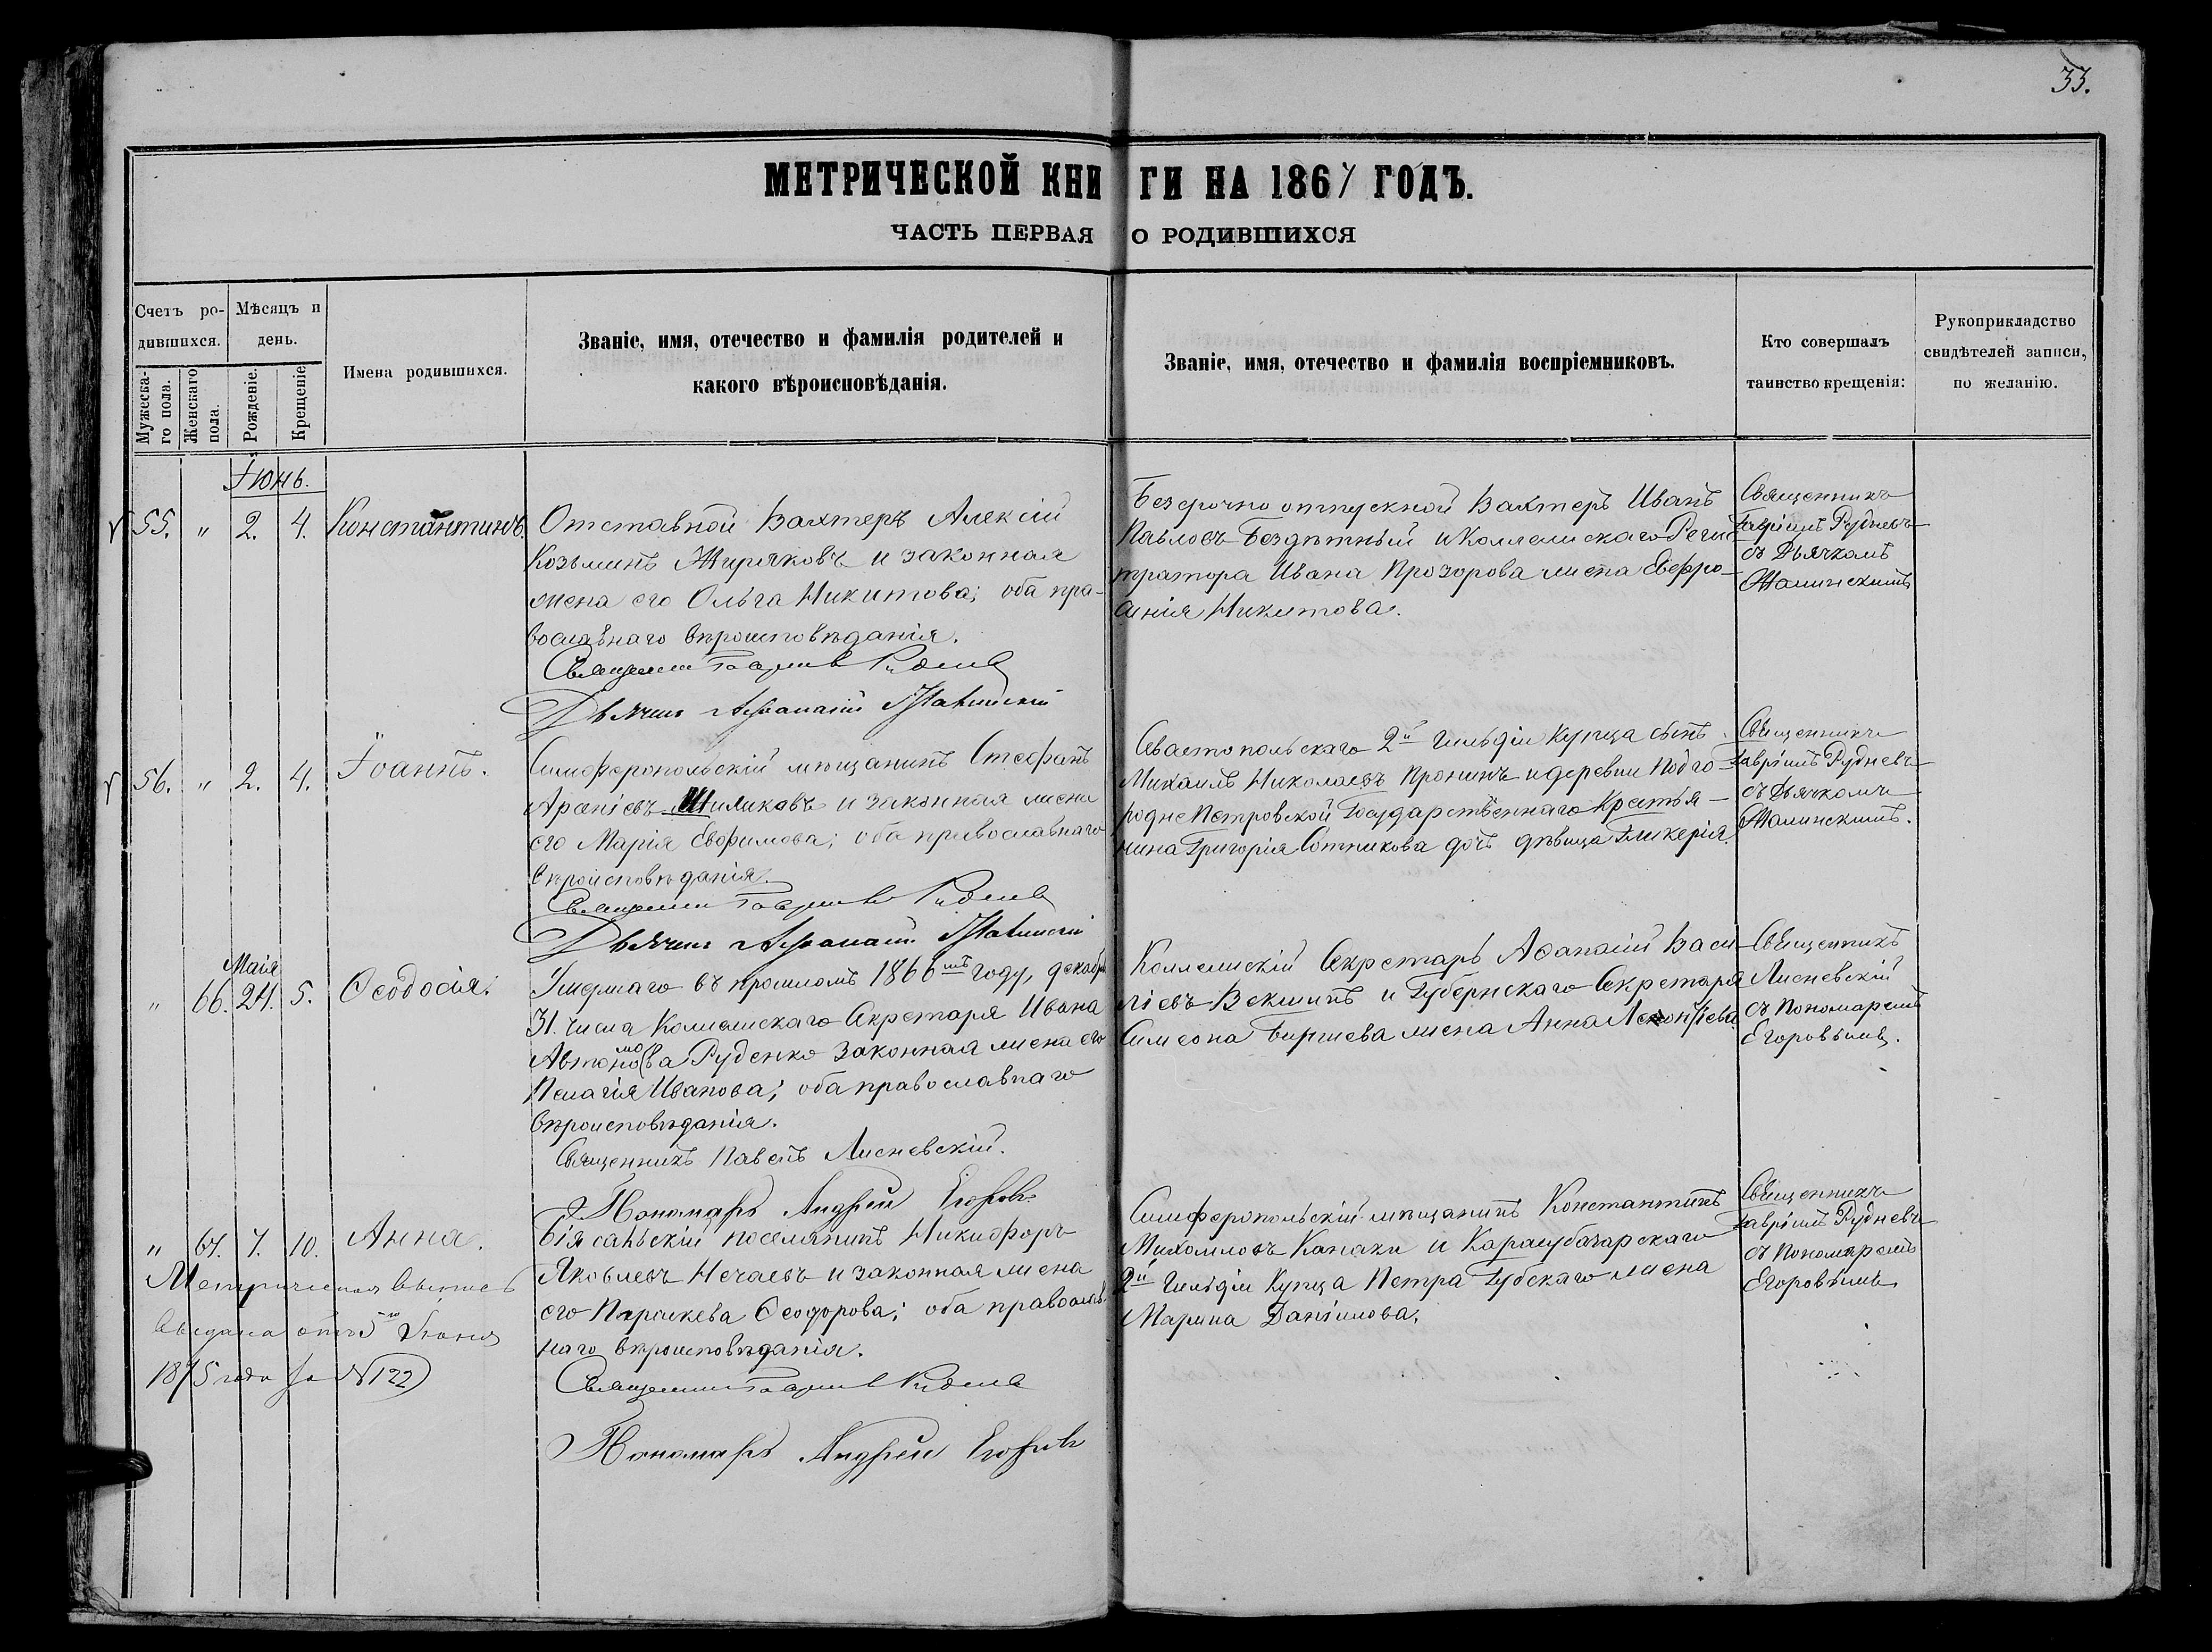 33.
МЕТРИЧЕСКОЙ КНИГИ НА 1867 ГОДЪ.
ЧАСТЬ ПЕРВАЯ О РОДИВШИХСЯ
Счетъ ро-
дившихся.
Мужеска-
го пола.
Женскаго
пола.
Мѣсяцъ и
день.
Рожденіе.
Крещеніе
Имена родившихся.
Званіе, имя, отечество и фамилія родителей и
какого вѣроисповѣданія.
Званіе, имя, отечество и фамилія воспріемниковъ.
Кто совершалъ
таинство крещенія:
Рукоприкладство
свидѣтелей записи,
по желанію.
Іюнь.
55. " 2. 4. Константинъ.
Отставной Вахтеръ Алексій
Козьминъ Жиряковъ и законная
жена его Ольга Никитова; оба пра-
вославнаго вѣроисповѣданія.
Священникъ Гавріилъ Рудневъ
Дьячекъ Афанасій Жалинскій
Безсрочно отпускной Вахтеръ Иванъ
Павловъ Бездѣтный и Коллежскаго Регис-
тратора Ивана Прозорова жена Евфро-
синія Никитова.
Священникъ
Гавріилъ Рудневъ
съ Дьячкомъ
Жалинскимъ
56. " 2. 4. Іоаннъ.
Симферопольскій мѣщанинъ Стефанъ
Шиликовъ и законная жена
его Марія Евфимова; оба православнаго
вѣроисповѣданія.
Священникъ Гавріилъ Рудневъ
Дьячекъ Афанасій Жалинскій
Севастопольскаго 2й Гильдіи Купца сынъ
Михаилъ Николаевъ Пронинъ и деревни Подго-
родне Петровской Государственнаго Крестья-
нина Григорія Сотникова дочь дѣвица Гликерія.
Священникъ
Гавріилъ Рудневъ
съ Дьячкомъ
Жалинскимъ.
Маія
" 66. 24. 5. Ѳеодосія.
Умершаго въ прошломъ 1866мъ году, декабря
31. числа Коллежскаго Секретаря Ивана
Автономова Руденко законная жена его
Пелагія Иванова; оба православнаго
вѣроисповѣданія.
Священникъ Павелъ Лисневскій.
Пономарь Андрей Егоровъ
Коллежскій Секретарь Аѳанасій Васи-
ліевъ Векшинъ и Губернскаго Секретаря
Симеона Биршева жена Анна Леонтіева.
Священникъ
Лисневскій
съ Пономаремъ
Егоровымъ.
" 67. 7. 10. Анна.
Біясальскій поселянинъ Никифоръ
Яковлевъ Нечаевъ и законная жена
его Параскева Ѳеодорова; оба православ-
наго вѣроисповѣданія.
Священникъ Гавріилъ Рудневъ
Пономарь Андрей Егоровъ
Симферопольскій мѣщанинъ Константинъ
Михаиловъ Канаки и Карасубазарскаго
2й Гильдіи Купца Петра Губскаго жена
Марина Даніилова.
Священникъ
Гавріилъ Рудневъ
съ Пономаремъ
Егоровымъ
Метрическая выпись
выдана отъ 5го Іюня
1875 года за №122